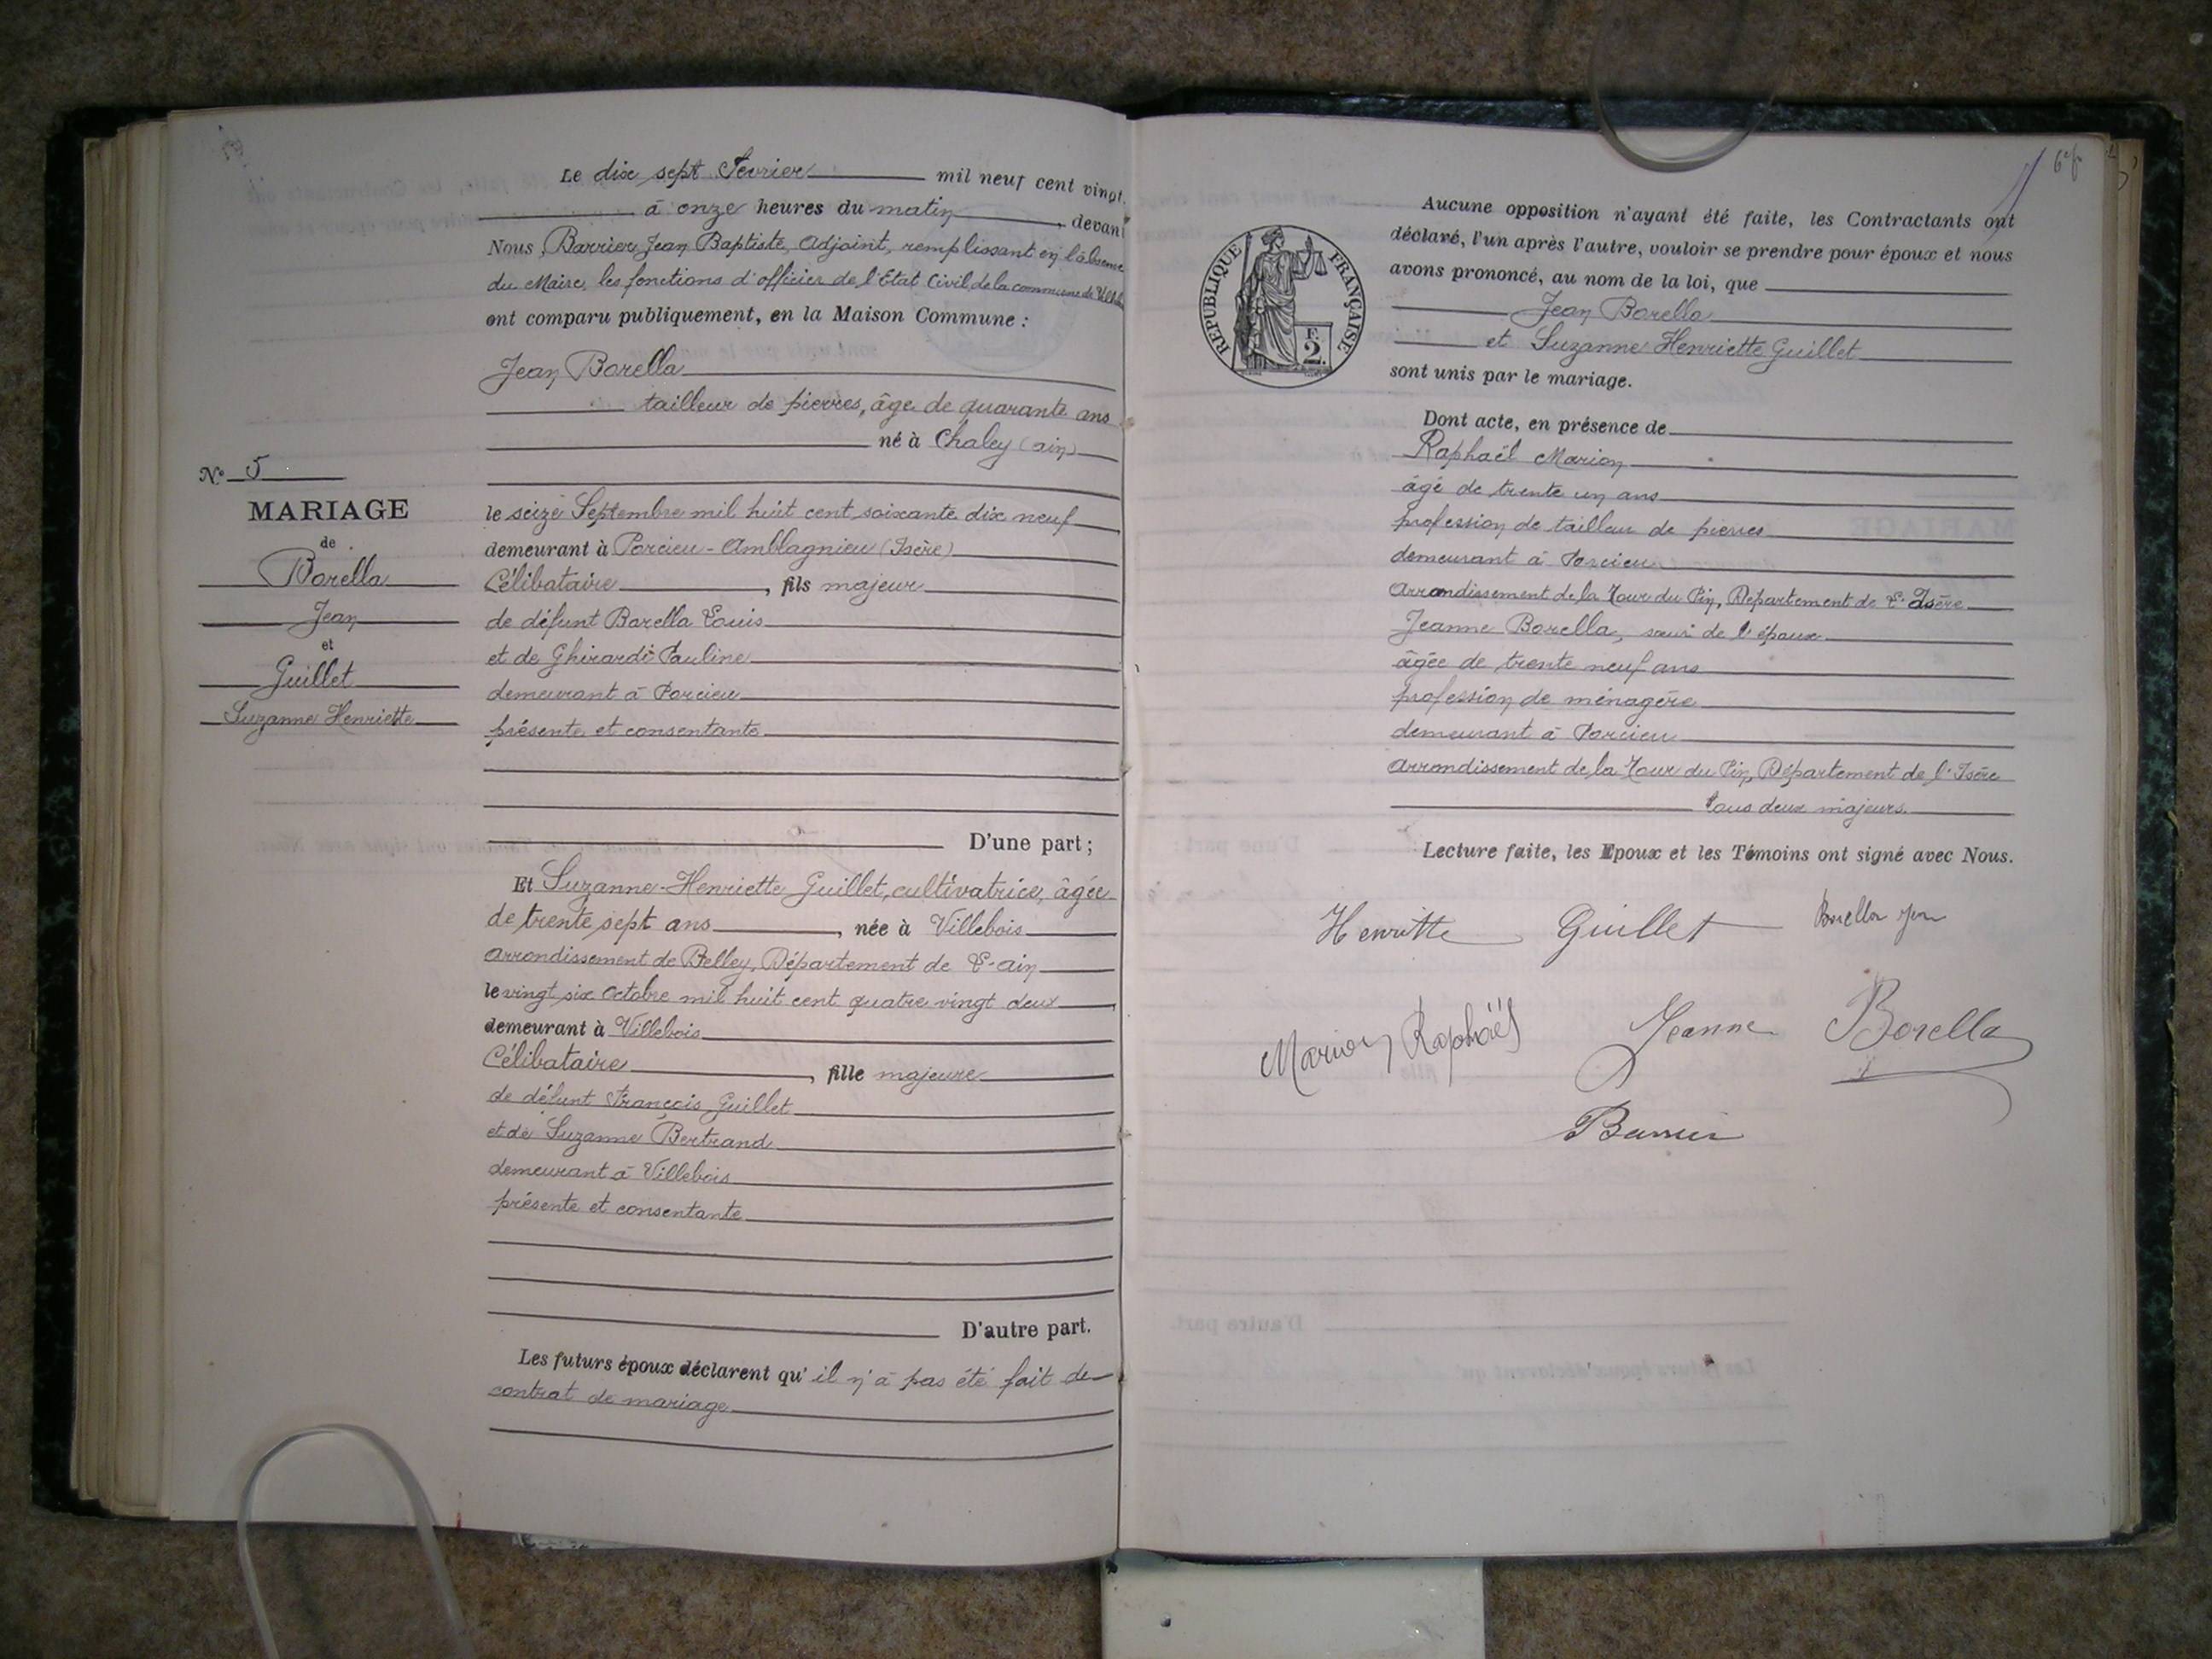 Le dix sept Février mil neuf cent vingt
à onze heures du matin, devant
Nous, Barrier Jean Baptiste, Adjoint, remplissant en l'absence
du Maire, les fonctions d'officier de l'Etat Civil de la commune de
ont comparu publiquement, en la Maison Commune :
Jean Borella
tailleur de pierres, âgé de quarante ans
né à Chaley (ain)
le seize Septembre mil huit cent soixante dix neuf
demeurant à Porcieu-Amblagnieu (Isère)
Célibataire, fils majeur
de défunt Borella Louis
et de Ghirardi Pauline
demeurant à Porcieu
présente et consentante
D'une part ;
Et Suzanne-Henriette Guillet, cultivatrice, âgée
de trente sept ans, née à Villebois
Arrondissement de Belley, Département de l'ain
le vingt six Octobre mil huit cent quatre vingt deux
demeurant à Villebois
Célibataire, fille majeure
de défunt François Guillet
et de Suzanne Bertrand
demeurant à Villebois
présente et consentante
D'autre part.
Les futurs époux déclarent qu'il n'a pas été fait de
contrat de mariage
N° 5
MARIAGE
de
Borella
Jean
et
Guillet
Suzanne Henriette
REPUBLIQUE FRANÇAISE
F.
2.
Aucune opposition n'ayant été faite, les Contractants ont
déclaré, l'un après l'autre, vouloir se prendre pour époux et nous
avons prononcé, au nom de la loi, que
Jean Borella
et Suzanne Henriette Guillet
sont unis par le mariage.
Dont acte, en présence de
Raphaël Marion
âgé de trente un ans
profession de tailleur de pierres
demeurant à Porcieu
Arrondissement de la Tour du Pin, Département de l'Isère
Jeanne Borella, sœur de l'époux
âgée de trente neuf ans
profession de ménagère
demeurant à Porcieu
Arrondissement de la Tour du Pin, Département de l'Isère
tous deux majeurs.
Lecture faite, les Epoux et les Témoins ont signé avec Nous.
Henriette Guillet Borella Jean
Marion Raphaël Jeanne Borella
Barrier